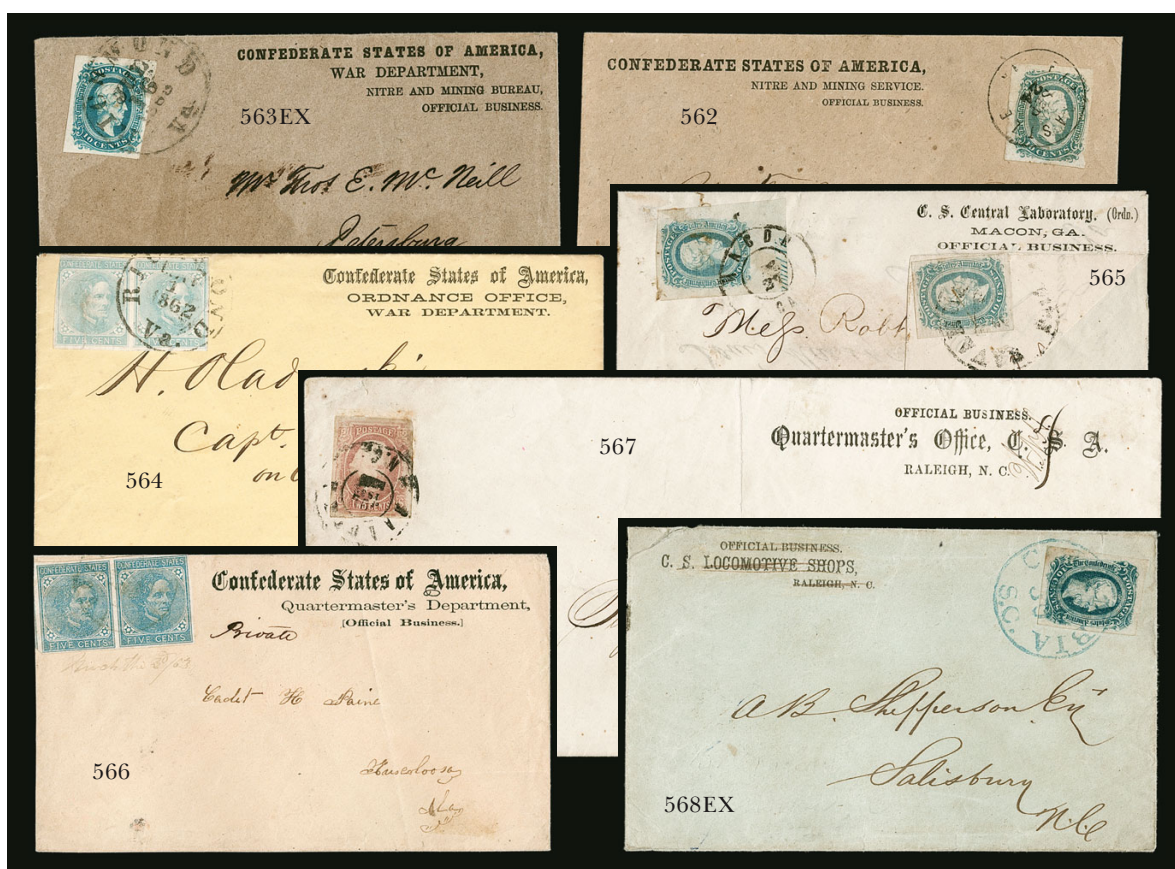 CONFEDERATE STATES OF AMERICA,
WAR DEPARTMENT,
NITRE AND MINING BUREAU,
OFFICIAL BUSINESS.
563EX
10 CENTS
Va
Mr Thos E. McNeill
Petersburg
CONFEDERATE STATES OF AMERICA,
NITRE AND MINING SERVICE.
OFFICIAL BUSINESS.
562
C. S. Central Laboratory, (Ordn.)
MACON, GA.
OFFICIAL BUSINESS.
565
MACON
Mess Robt
Confederate States of America,
ORDNANCE OFFICE,
WAR DEPARTMENT.
1862
Va.
FIVE CENTS
H. Olad
Capt.
on
564
OFFICIAL BUSINESS.
Quartermaster's Office, C. S. A.
RALEIGH, N. C.
567
POSTAGE
TWO CENTS
CONFEDERATE STATES CONFEDERATE STATES
FIVE CENTS FIVE CENTS
Confederate States of America,
Quartermaster's Department,
[Official Business.]
Private
Cadet H Paine
Tuscaloosa
Ala
566
OFFICIAL BUSINESS.
C. S. LOCOMOTIVE SHOPS,
RALEIGH, N. C.
S.C.
A B. Shepperson Esq
Salisbury
N.C
568EX